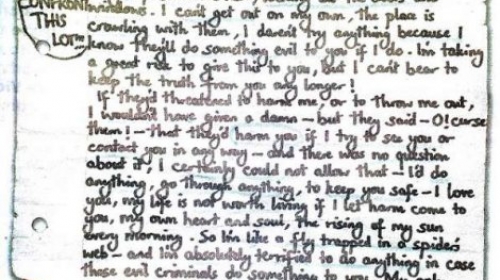 CONFRONT windows. I can't get out on my own, the place is
THIS crawling with them, I daren't try anything because I
LOT know they'll do something evil to you if I do. I'm taking
a great risk to give this to you, but I can't bear to
keep the truth from you any longer!
If they'd threatened to harm me, or to throw me out,
I wouldn't have given a damn – but they said – O! curse
them! – that they'd harm you if I try to see you or
contact you in any way – and there was no question
about it, I certainly could not allow that – I'd do
anything, go through anything, to keep you safe – I love
you, my life is not worth living if I let harm come to
you, my own heart and soul, the rising of my sun
every morning. So I'm like a fly trapped in a spider's
web – and I'm absolutely terrified to do anything in case
those evil criminals do something to you.